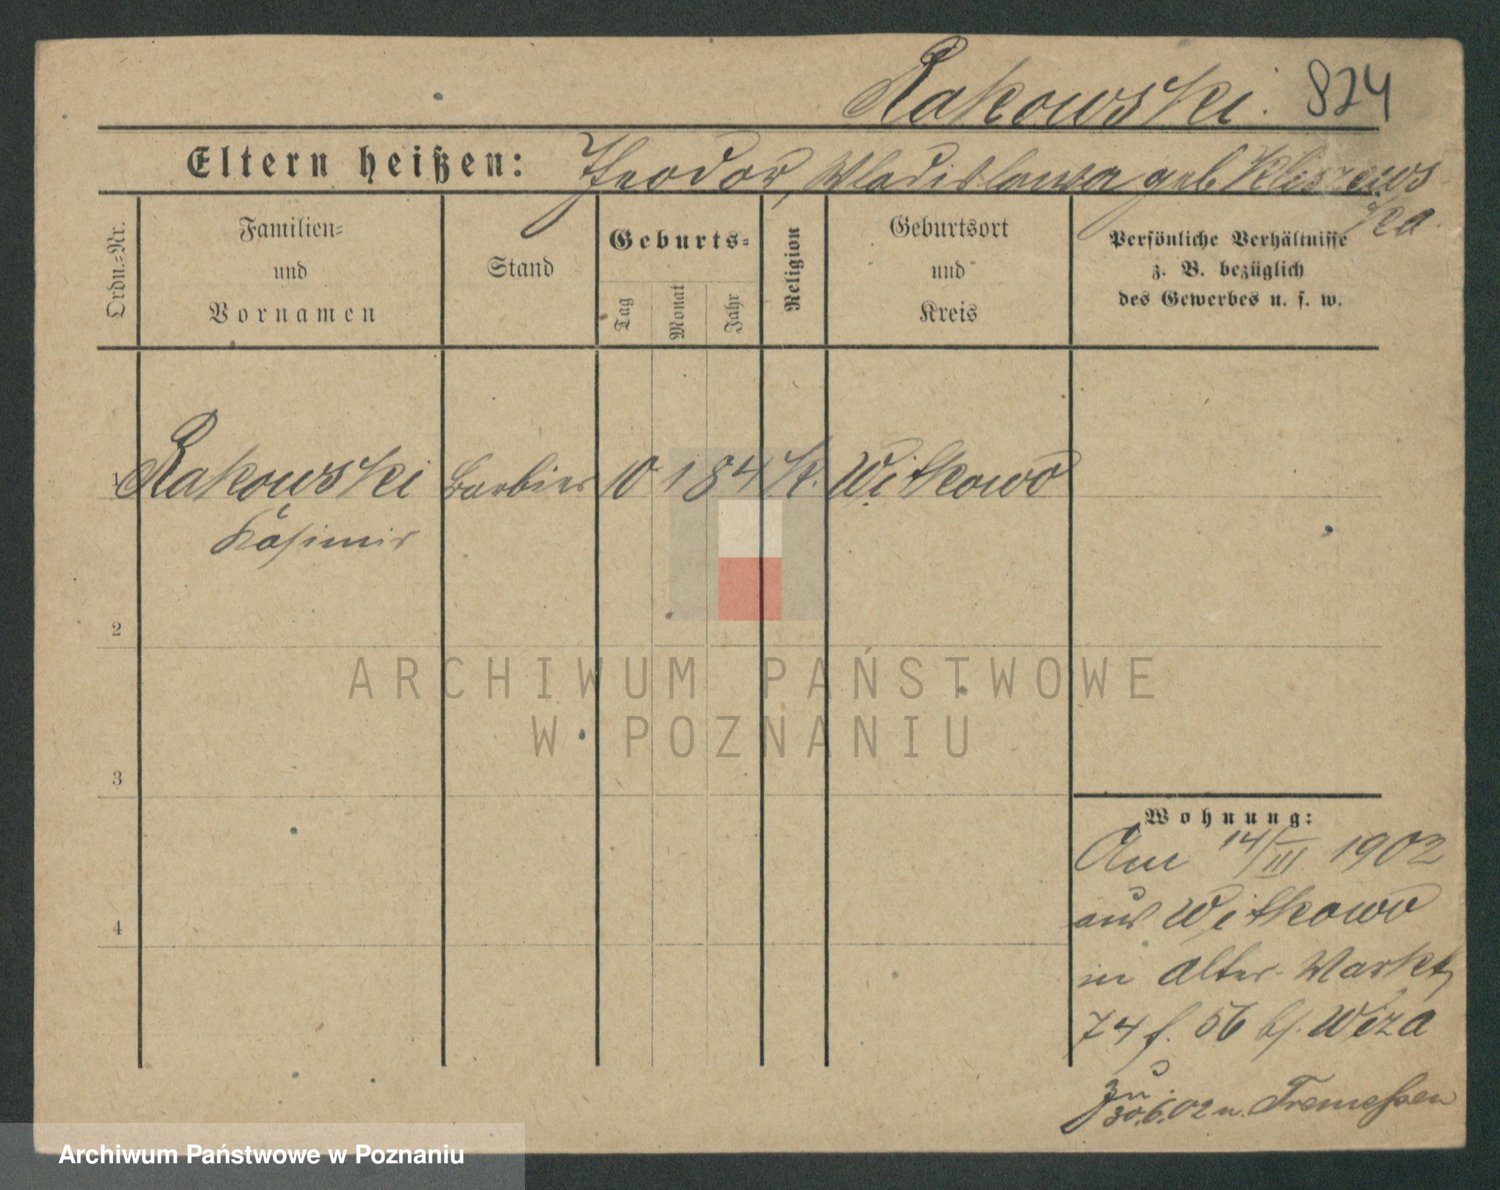 Rakowski. 824
Eltern heißen: Theodor, Wladislawa geb. Kliszews
ka.
Ordn.=Nr.
Familien=
und
Vornamen
Stand
Geburts=
Tag
Monat
Jahr
Religion
Geburtsort
und
Kreis
Persönliche Verhältnisse
z. B. bezüglich
des Gewerbes u. s. w.
Rakowski Barbier 10 1 84 K. Witkowo
Kasimir
2
3
4
Wohnung:
Am 14/III 1902
aus Witkowo
in Alter-Markt
74 f. 56 bei Wiza
30.6.02 n. Tremessen
ARCHIWUM PAŃSTWOWE
W POZNANIU
Archiwum Państwowe w Poznaniu